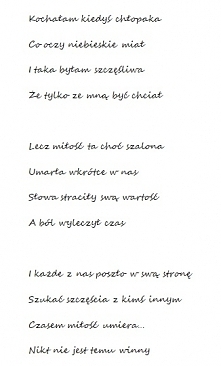 Kochałam kiedyś chłopaka
Co oczy niebieskie miał
I taka byłam szczęśliwa
Że tylko ze mną być chciał
Lecz miłość ta choć szalona
Umarła wkrótce w nas
Słowa straciły swą wartość
A ból wyleczył czas
I każde z nas poszło w swą stronę
Szukać szczęścia z kimś innym
Czasem miłość umiera...
Nikt nie jest temu winny